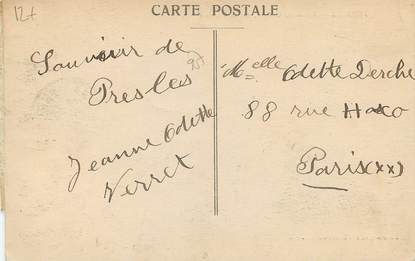 12+
CARTE POSTALE
Souvenir de
Presles
95
Jeanne Odette
Verret
Melle Odette Derche
88 rue Haxo
Paris (xx)